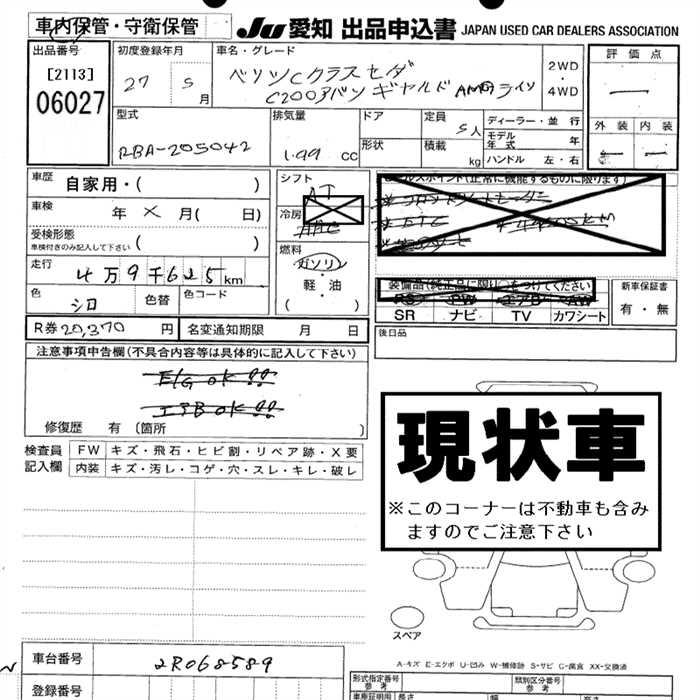 車内保管・守衛保管
JU 愛知 出品申込書 JAPAN USED CAR DEALERS ASSOCIATION
出品番号
[2113]
06027
初度登録年月
27 5月
車名・グレード
ベンツCクラスセダ
C200アバンギャルドAMGライン
2WD
・
4WD
評価点
—
外装 内装
— —
型式
RBA-205042
排気量
1.99 CC
ドア
形状
定員
5人
積載 kg
ディーラー・並行
モデル年式 年
ハンドル 左・右
車歴
自家用・( )
車検
年 × 月( 日)
受検形態
車検付きのみ記入して下さい ( )
走行
4万9千625km
色
シロ
色替
色コード
シフト
AT
冷房
AAC
燃料
ガソリン
・軽・油
( )
セールスポイント(正常に機能するものに限ります)
装備品(純正品に限り○をつけてください)
RS PW エアB AW
SR ナビ TV カワシート
新車保証書
有・無
R券 20,370 円
名変通知期限 月 日
後日品
注意事項申告欄(不具合内容等は具体的に記入して下さい)
E/G OK!!
エアB OK!!
修復歴 有 (箇所 )
検査員
記入欄
FW キズ・飛石・ヒビ割・リペア跡・X要
内装 キズ・汚レ・コゲ・穴・スレ・キレ・破レ
現状車
※このコーナーは不動車も含み
ますのでご注意下さい
スペア
A-キズ E-エクボ U-凹み W-補修跡 S-サビ C-腐食 XX-交換済
車台番号
2R068589
登録番号
形式指定番号
参考
類別区分番号
参考
車庫証明用
長さ
幅
高さ